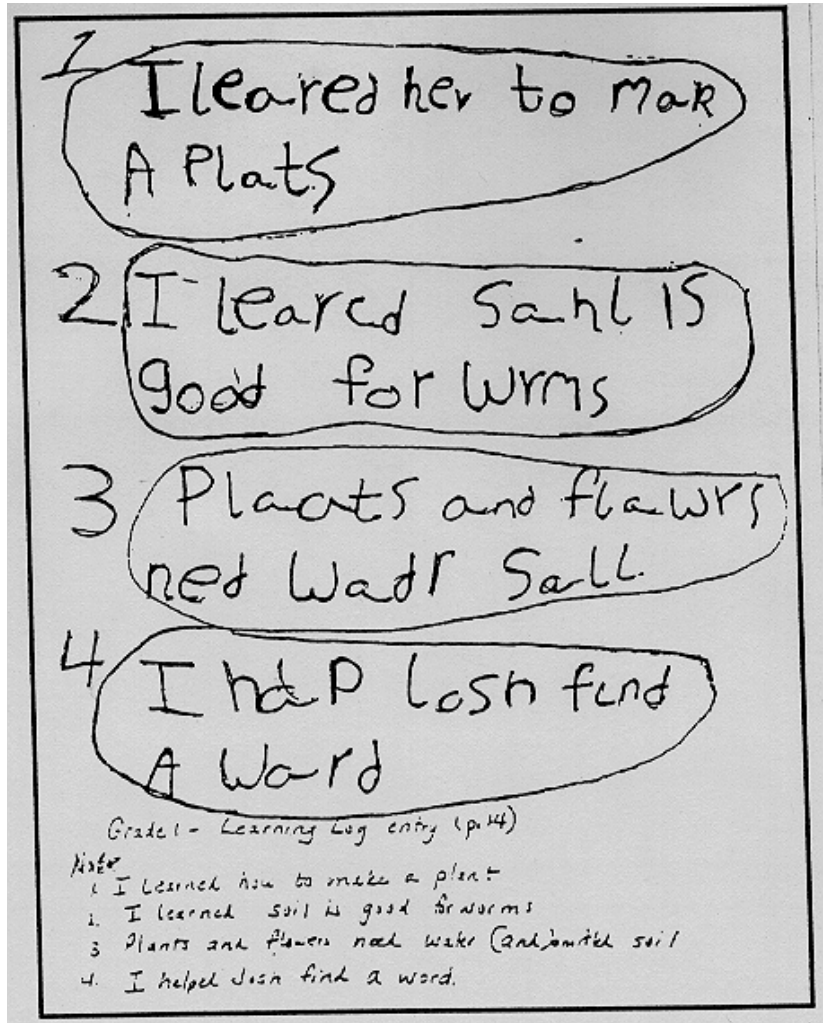 1 I leared her to mak
A Plats
2 I leared Sahl IS
good for Wrms
3 Plaats and flawrs
ned Wadr Sall
4 I halP losh find
A Ward
Grade 1 - Learning Log entry (p.14)
Note
1. I learned how to make a plant
2. I learned soil is good for worms
3 Plants and flowers need water (and) omitted soil
4. I helped Josh find a word.